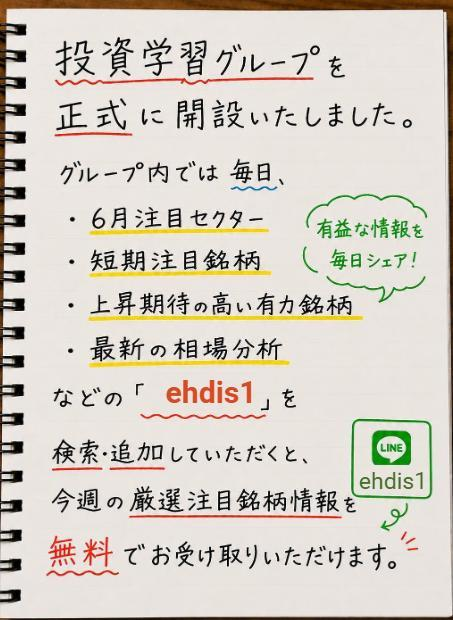 投資学習グループを
正式に開設いたしました。
グループ内では毎日、
・6月注目セクター
・短期注目銘柄
・上昇期待の高い有力銘柄
・最新の相場分析
有益な情報を
毎日シェア！
などの「ehdis1」を
検索・追加していただくと、
LINE
ehdis1
今週の厳選注目銘柄情報を
無料でお受け取りいただけます。